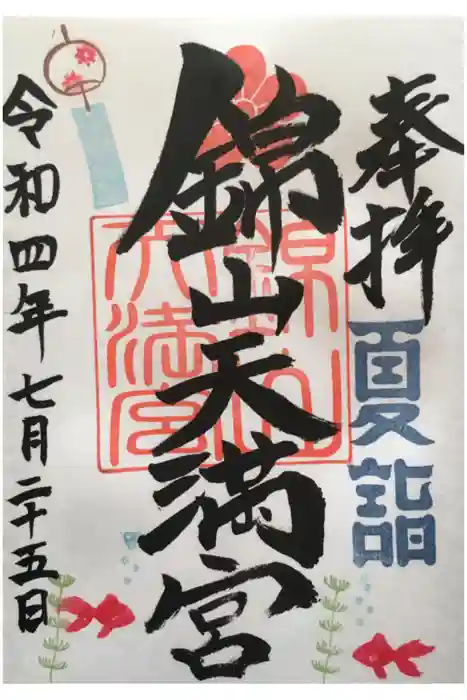 奉拝
夏詣
錦山天満宮
錦山
天満宮
令和四年七月二十五日